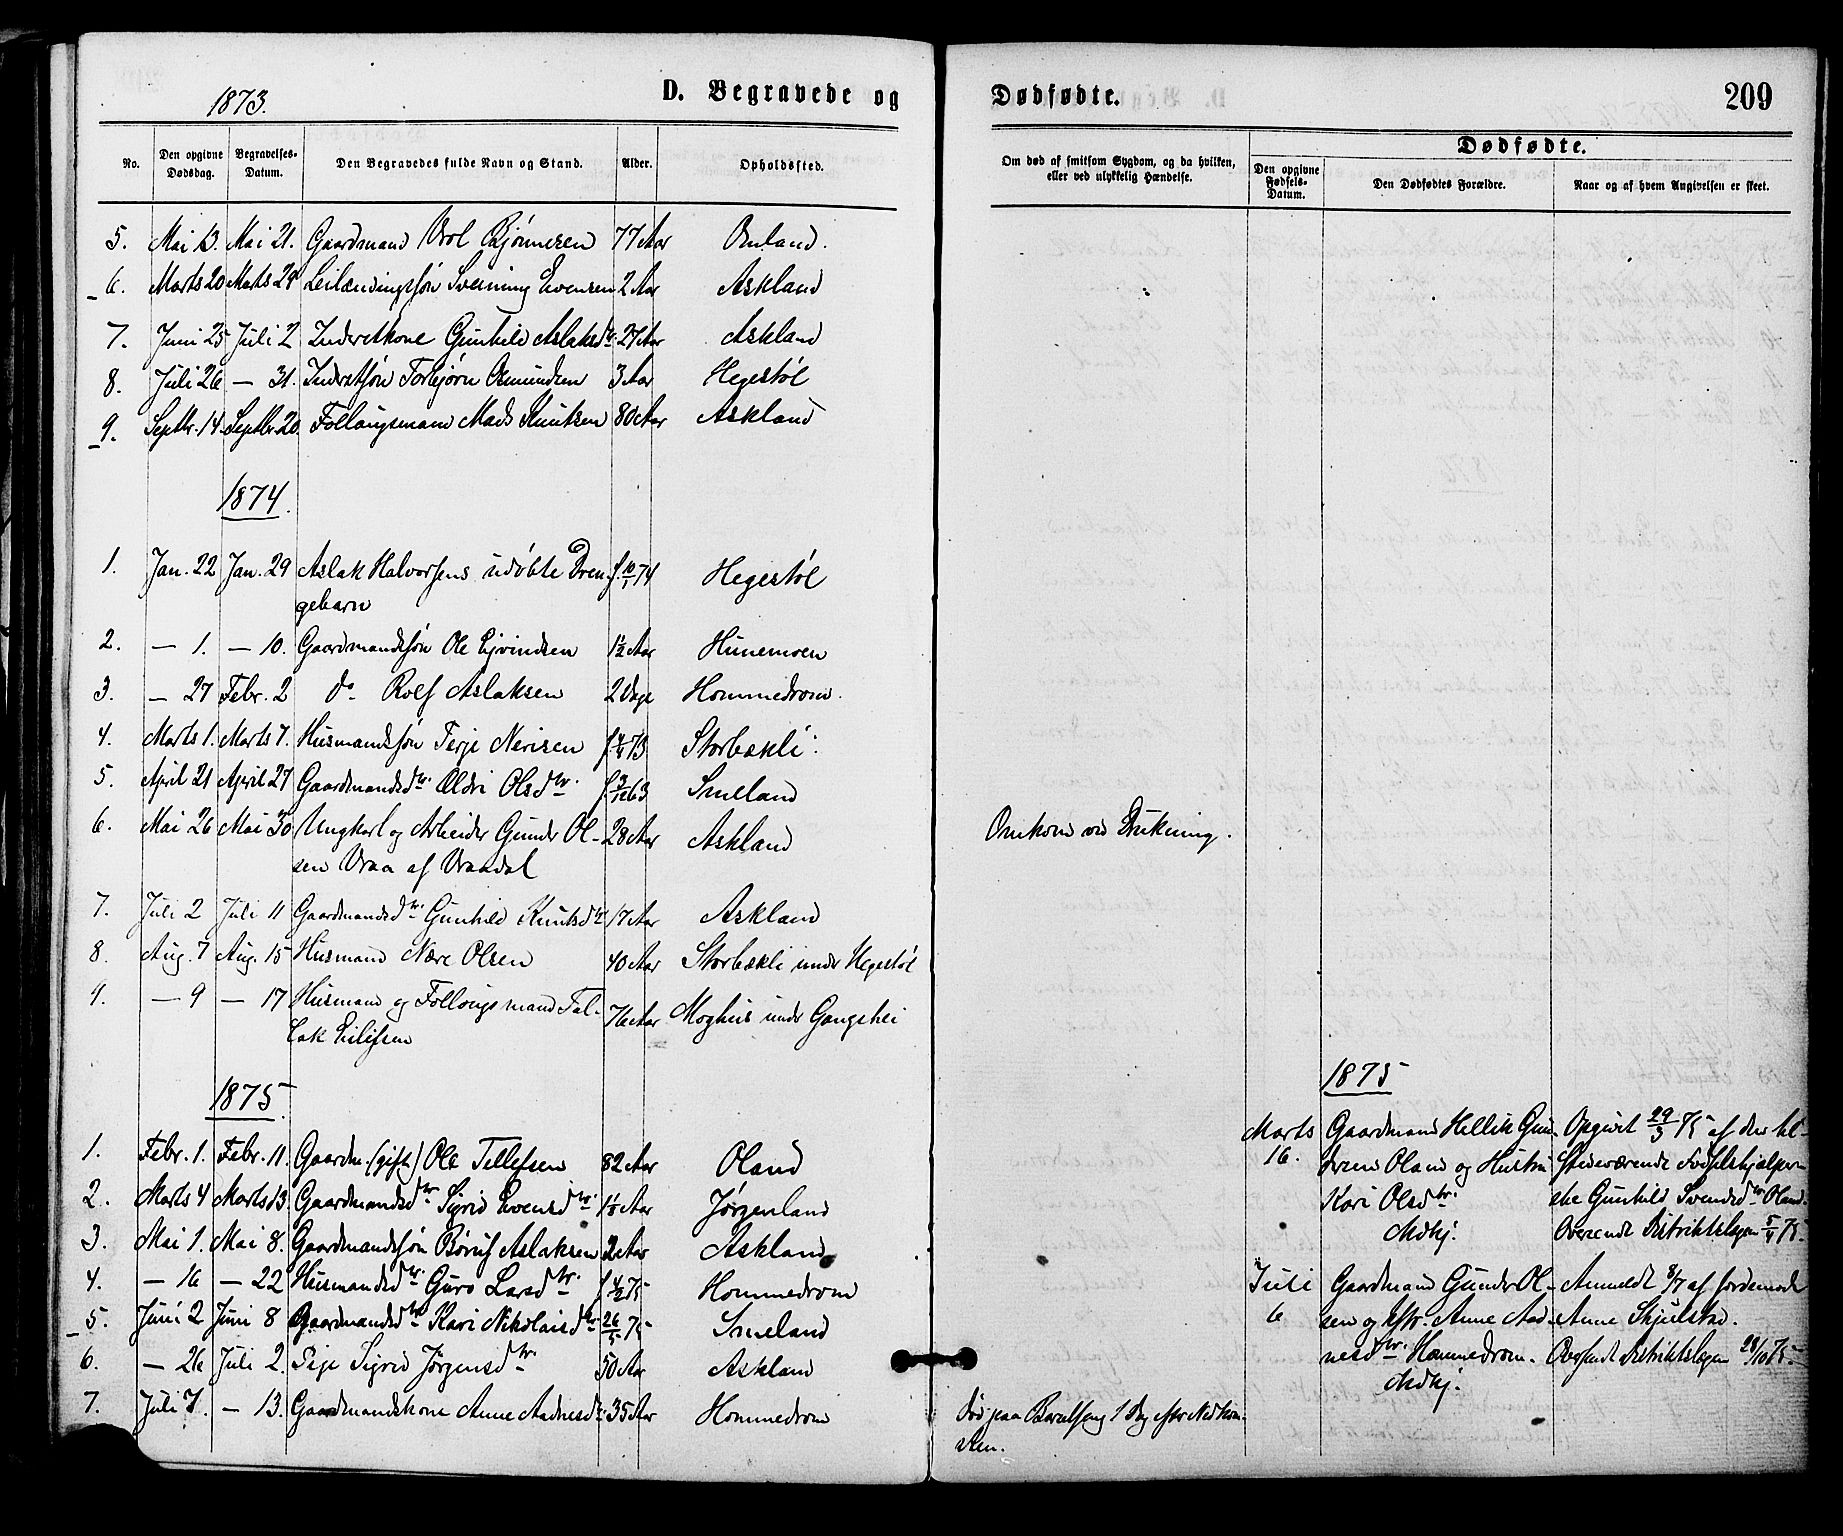 1873.
D. Begravede og
No.
Den opgivne Dødsdag.
Begravelses-Datum.
Den Begravedes fulde Navn og Stand.
Alder.
Opholdssted.
5. Mai 13. Mai 21. Gaardmand Bjönnesen 77 Aar Omland.
6. Marts 20 Marts 29 Leilændingssøn Svenning Evensen 2 Aar Askland
7. Juni 25 Juli 2 Inderstkone Gunhild Aslaksdr. 27 Aar Askland
8. Juli 26 — 31. Inderstsøn Torbjørn Osmundsen 3 Aar Hegestöl
9. Septbr. 14. Septbr. 20. Follougsmand Mads Knutsen 80 Aar Askland
1874.
1. Jan. 22 Jan. 29 Aslak Halvorsens udöbte Dren- f. 10/1 74 Hegestöl
gebarn
2. — 1. — 10. Gaardmandssøn Ole Ejvindsen 1½ Aar Hunemoen
3. — 27 Febr. 2 do Rolf Aslaksen 2 Dage Hommedrom.
4. Marts 1. Marts 7. Husmandssøn Terje Nerisen f. 4/4 73 Storbækli
5. April 21 April 27 Gaardmandsdtr. Olsdtr. f. 3/12 63 Smeland
6. Mai 26 Mai 30 Ungkarl og Arbeider Gunder Ol- 28 Aar Askland
sen Vraa af Vraadal
7. Juli 2 Juli 11 Gaardmandsdtr. Gunhild Knutsdtr 17 Aar Askland
8. Aug. 7 Aug. 15 Husmand Nære Olsen 40 Aar Storbækli under Hegestöl
9. — 9 — 17 Husmand og Follougsmand Tal- 76 Aar Moghus under Gangshei
lak Eilifsen
1875.
1. Febr. 1. Febr. 11. Gaardm. (gift) Ole Tellefsen 82 Aar Oland
2. Marts 4 Marts 13. Gaardmandsdtr. Sigrid Evensdtr. Aar Jörgenland
3. Mai 1. Mai 8. Gaardmandssøn Aslaksen 2 Aar Askland
4. — 16 — 22 Husmandsdtr. Guro Larsdtr. f. 4/2 75 Hommedrom
5. Juni 2 Juni 8 Gaardmandsdtr. Kari Nikolaisdtr. 26/5 75 Smeland
6. — 26 Juli 2. Pige Sigrid Jörgensdtr. 50 Aar Askland
7. Juli 7. — 13. Gaardmandskone Anne Aadnesdtr. 35 Aar Hommedrom
Dødfødte.
209
Om død af smitsom Sygdom, og da hvilken,
eller ved ulykkelig Hændelse.
Dødfødte.
Den opgivne Fødsels-Datum.
Den Dødfødtes Forældre.
Naar og af hvem Angivelsen er skeet.
Omkom ved Drukning.
1875
Marts Gaardmand Hellik Gun- Opgivet 29/3 75 af den til-
16. dersen Oland og Hustru stedeværende Fødselshjælper-
Kari Olsdtr. ske Gunhild Svendsdtr. Oland.
Mdkj. Oversendt Distriktslægen 5/4 75.
Juli Gaardmand Gunder Ol- Anmeldt 8/7 af Jordemod.
6 sen og Hstr. Anne Aad- Anne Skjulstad.
nesdtr. Hommedrom. Oversendt Distriktslægen 28/10 75
Mdkj.
Död paa Barselseng 1 Dag efter Nedkom-
sten.